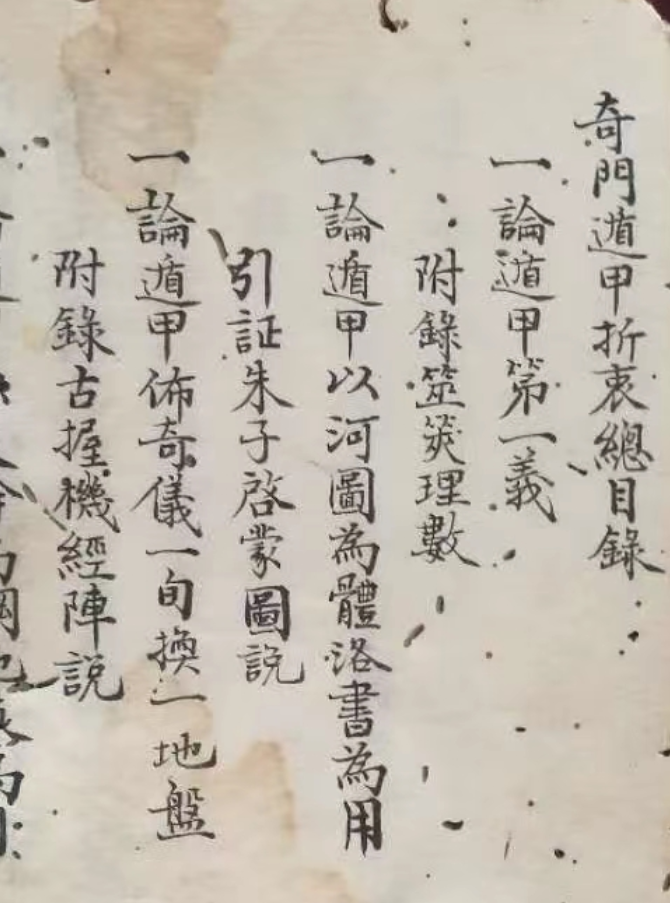 奇門遁甲折衷總目錄
一論遁甲第一義
附錄筮筴理數
一論遁甲以河圖為體洛書為用
引証朱子啓蒙圖説
一論遁甲佈奇儀一旬換一地盤
附錄古握機經陣説